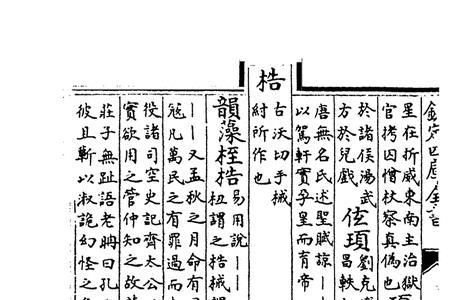 欽定四庫全書
星在折威東南主治獄
官拷囚僧杖察真偽也
於諸侯湯武
方於兒戲
伭頊
劉克
昌軼
唐無名氏述聖賦諒丨
以篤軒實孚皇而有帝
梏
古沃切手械
紂所作也
韻藻桎梏
易用說丨丨
杻謂之梏械
丨丨又孟秋之月命有
凡萬民之有罪過而
役諸司空史記齊太公
實欲用之管仲知之故
莊子無趾語老聃曰孔
彼且蘄以淑詭幻怪之